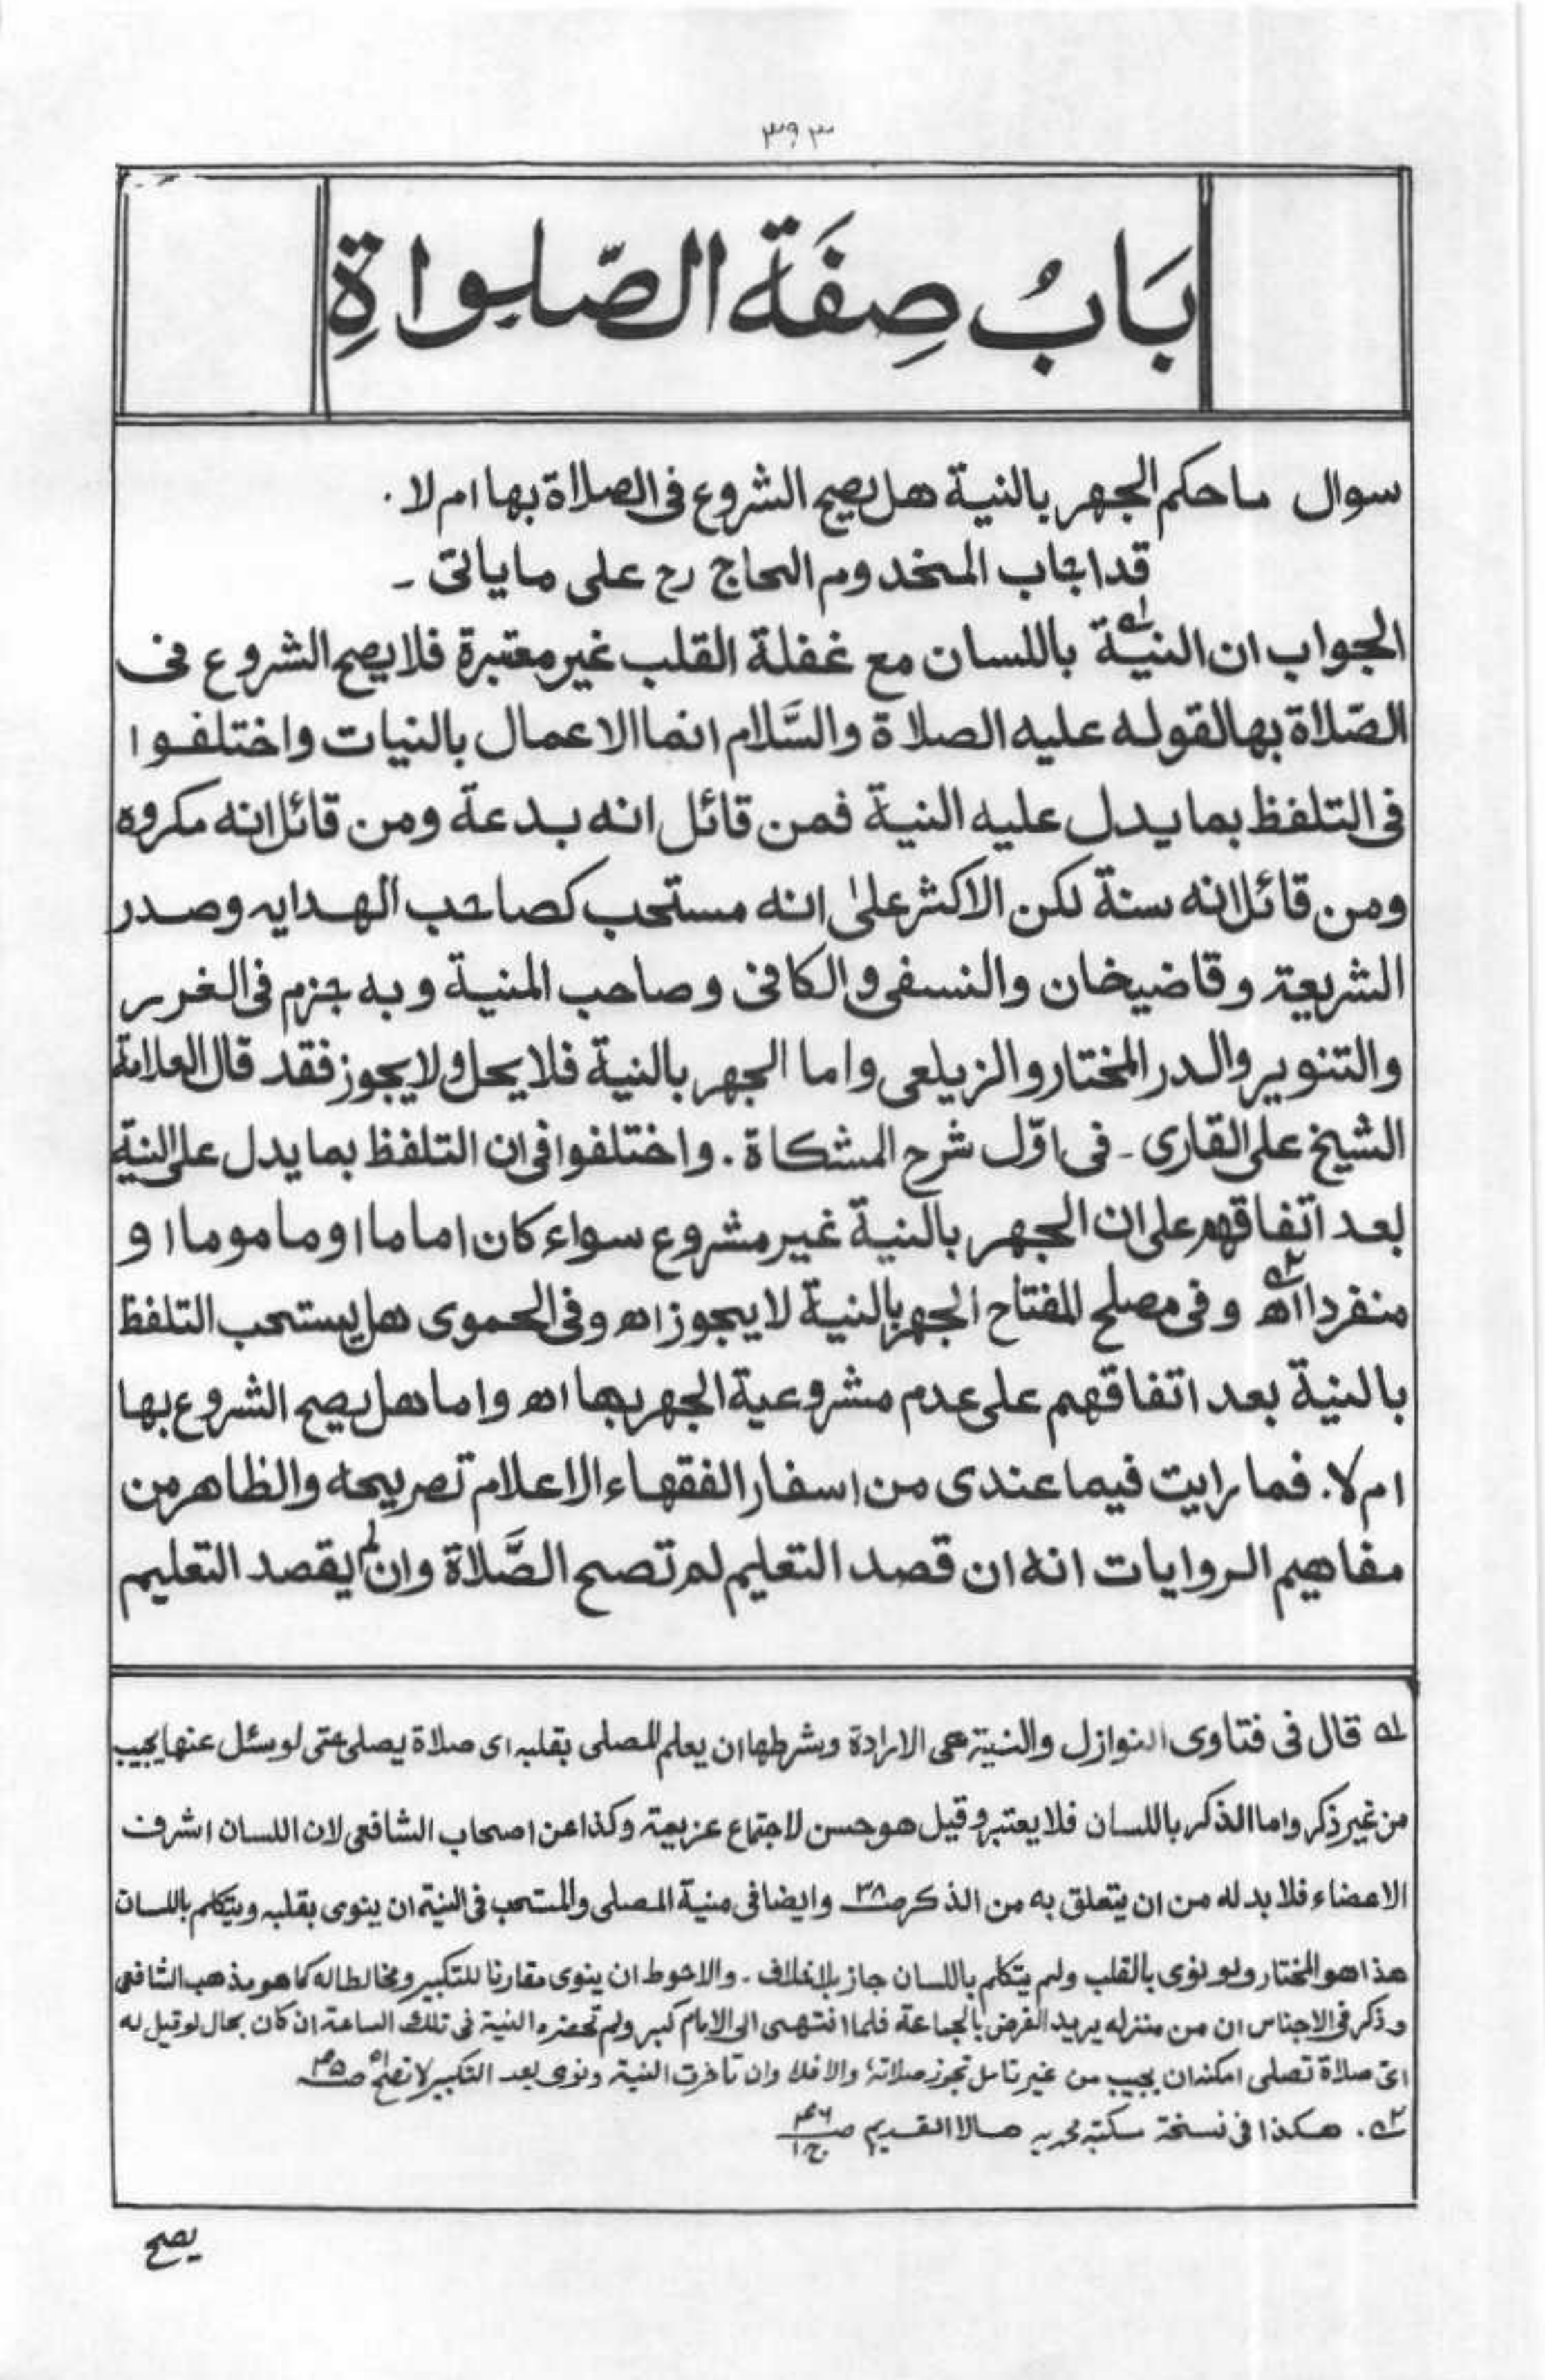 ٣٩٣
بَابُ صِفَة الصّلواةِ
سوال ماحكم الجهر بالنية هل يصح الشروع فى الصلاة بها ام لا .
قد اجاب المخدوم الحاج رح على ما ياتى ۔
الجواب ان النية له باللسان مع غفلة القلب غير معتبرة فلا يصح الشروع فى
الصّلاة بها لقوله عليه الصلاة والسَّلام انما الاعمال بالنيات واختلفوا
فى التلفظ بما يدل عليه النية فمن قائل انه بدعة ومن قائل انه مكروه
ومن قائل انه سنة لكن الاكثر علىٰ انه مستحب كصاحب الهدايه وصدر
الشريعة وقاضيخان والنسفى والكافى وصاحب المنية وبه جزم فى الغرر
والتنوير والدر المختار والزيلعى واما الجهر بالنية فلا يحل ولا يجوز فقد قال العلامة
الشيخ على القارى ۔ فى اوّل شرح المشكاة . واختلفوا فى ان التلفظ بما يدل على النية
بعد اتفاقهم على ان الجهر بالنية غير مشروع سواء كان اماما او ماموما او
منفردا اه ٢ه وفى مصلح المفتاح الجهر بالنية لا يجوز اه وفى الحموى هل يستحب التلفظ
بالنية بعد اتفاقهم على عدم مشروعية الجهر بها اه واما هل يصح الشروع بها
ام لا . فما رايت فيما عندى من اسفار الفقهاء الاعلام تصريحه والظاهر من
مفاهيم الروايات انه ان قصد التعليم لم تصح الصَّلاة وان لم يقصد التعليم
له قال فى فتاوى النوازل والنية هى الارادة وشرطها ان يعلم المصلى بقلبه اى صلاة يصلى حتى لو سئل عنها يجيب
من غير ذكر واما الذكر باللسان فلا يعتبر وقيل هو حسن لاجتماع عزيمة وكذا عن اصحاب الشافعى لان اللسان اشرف
الاعضاء فلا بد له من ان يتعلق به من الذكر صـ٣٨ وايضا فى منية المصلى والمستحب فى النية ان ينوى بقلبه ويتكلم باللسان
هذا هو المختار ولو نوى بالقلب ولم يتكلم باللسان جاز بلا خلاف ۔ والاحوط ان ينوى مقارنا للتكبير ومخالطا له كما هو مذهب الشافعى
وذكر فى الاجناس ان من منزله يريد الفرض بالجماعة فلما انتهى الى الامام كبر ولم تحضره النية فى تلك الساعة ان كان بحال لو قيل له
اى صلاة تصلى امكنه ان يجيب من غير تامل تجوز صلاته والا فلا وان تاخرت النية ونوى بعد التكبير لا تصح اه
٢ه . هكذا فى نسخة مكتبه محمديه هالا القديم صـ٤٦ ج١
يصح